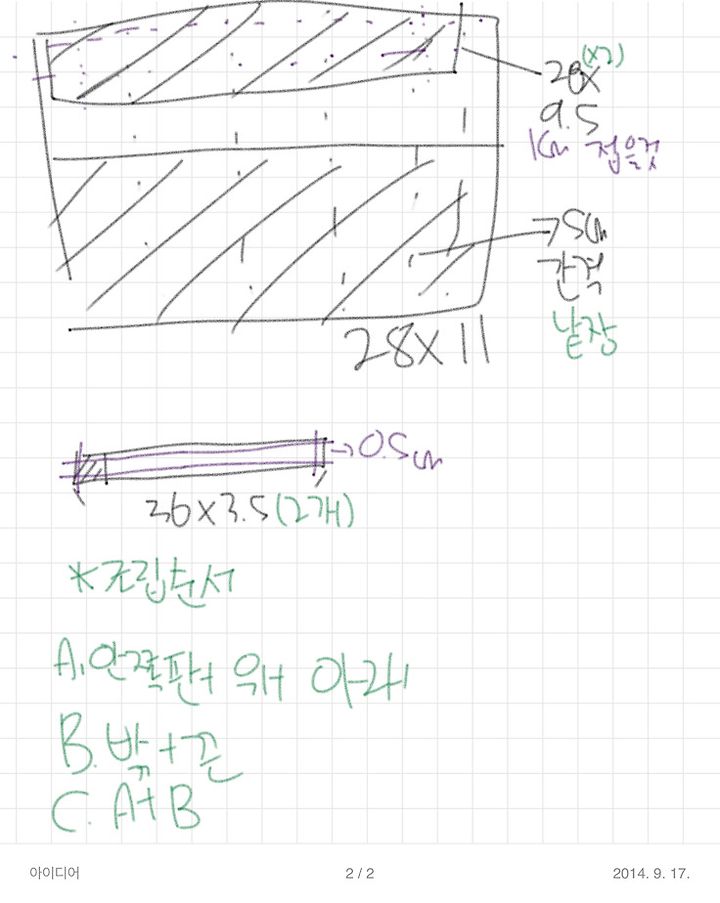 (x2)
28x
9.5
1cm 접을것
75cm
간격
낱장
28x11
→0.5cm
36x3.5(2개)
*조립순서
A. 안쪽판+위+아래
B. 밖+끈
C. A+B
아이디어
2 / 2
2014. 9. 17.